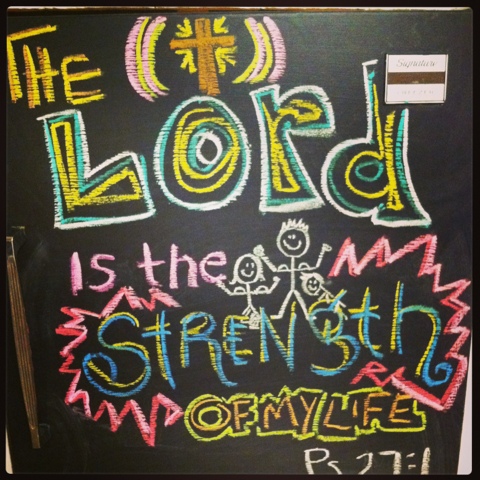 THE
Lord
Is the
StRENGth
OF MY LIFE
Ps 27:1
Signature